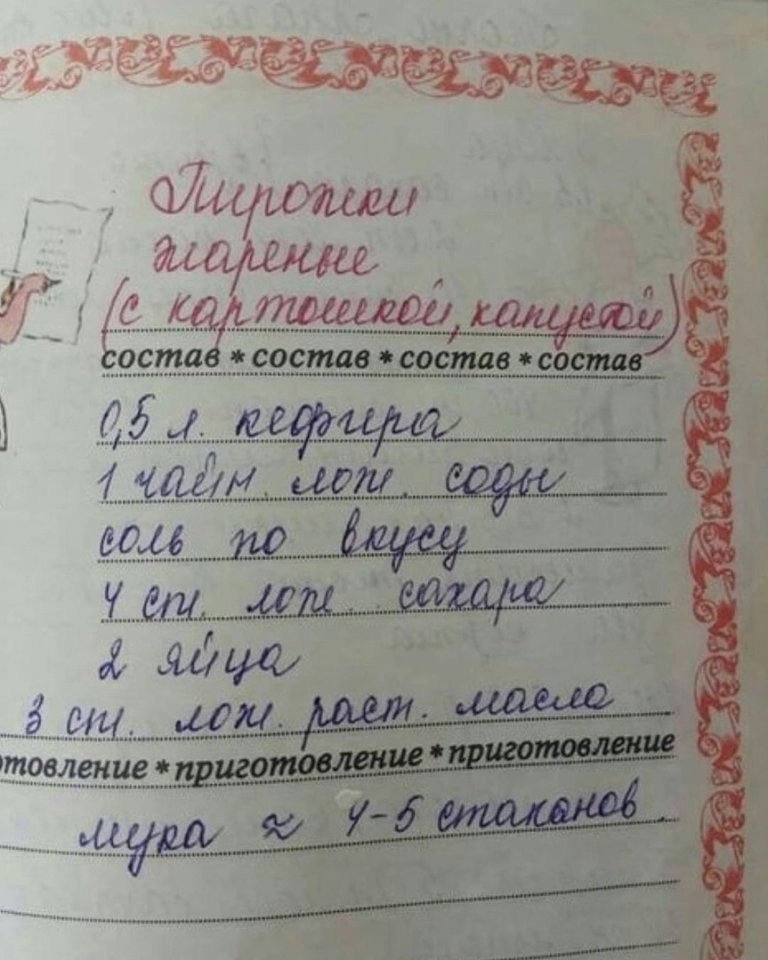 Пирожки
жареные
(с картошкой, капустой)
состав * состав * состав * состав
0,5 л. кефира
1 чайн. лож. соды
соль по вкусу
4 ст. лож. сахара
2 яйца
3 ст. лож. раст. масла
отовление * приготовление * приготовление
мука ≈ 4-5 стаканов